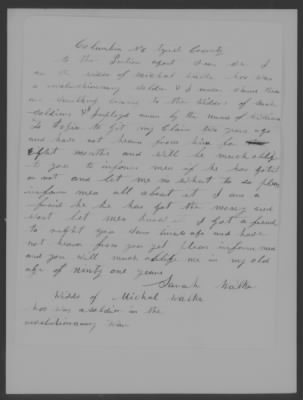 Columbia No Tyrel County
to the Pention agent Dear Sir I
am the widdo of michal Walka hoo was
a revolutionary Soldier & I under stand thare
is something coming to the widdos of Such
Soldiers & I employed a man by the name of William
to try to get my Claim two years ago
and have not heard from him for
Eight months and will be much oblige
to you to inform mee if he has got it
or not and let me no what to do pleas
inform mee all about it I am a
fraid he has got the money and
wont let mee know I got a friend
to right you some time ago and have
not heard from you yet pleas inform mee
and you will much oblige me in my old
age of ninty one years
Sarah Walka
Widdo of Michal Walka
hoo was a soldier in the
revolutionary war